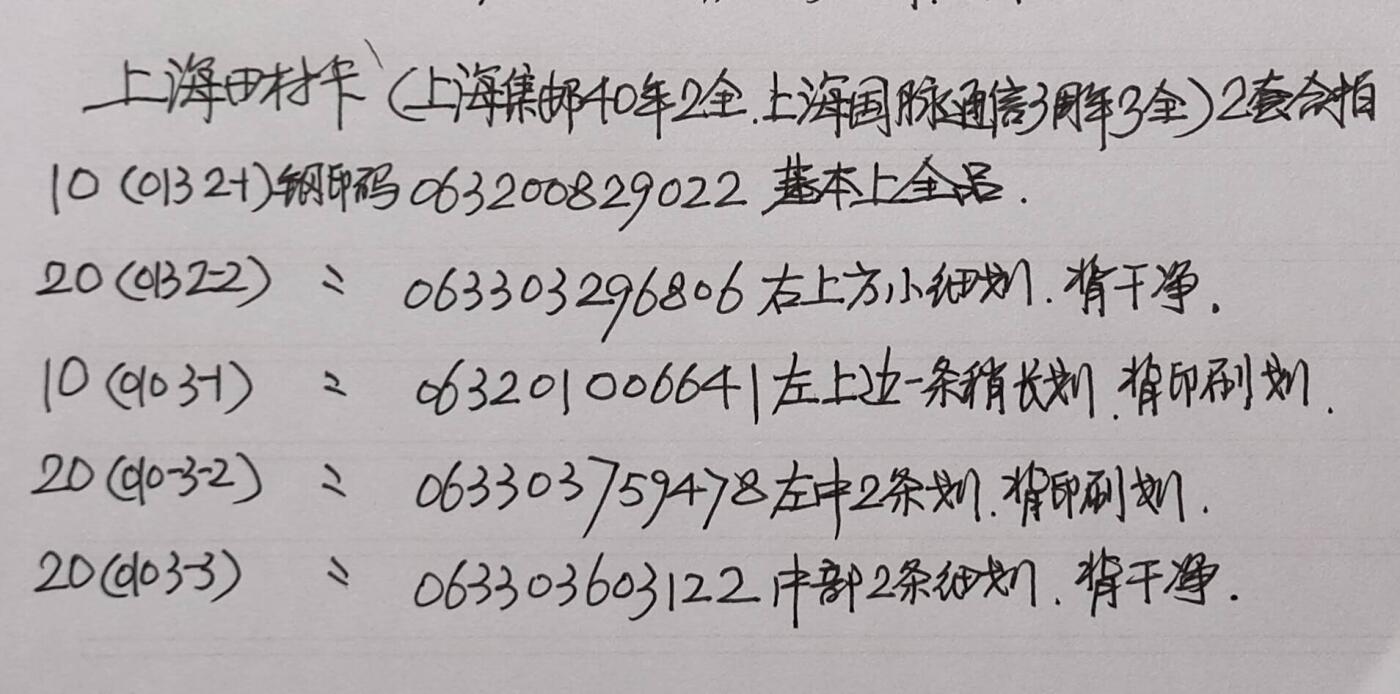 上海田村卡(上海集邮40年2全.上海国脉通信3周年3全)2套合拍
10(0132-1)钢印码063200829022 基本上全品.
20(0132-2) 〃 063303296806右上方小细划.背干净.
10(0103-1) 〃 063201006641左上边一条稍长划.背印刷划.
20(010-3-2) 〃 063303759478左中2条划.背印刷划.
20(0103-3) 〃 063303603122中部2条细划.背干净.